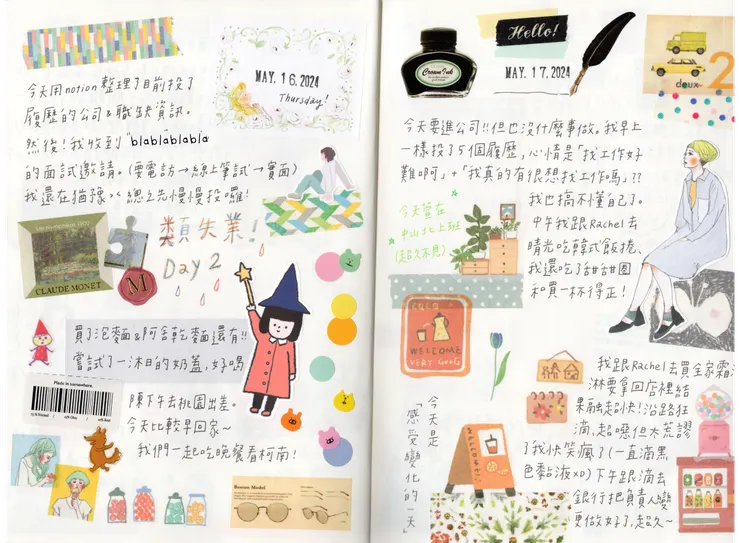 MAY. 16. 2024
Thursday!
今天用notion整理了目前投了
履歷的公司&職缺資訊。
然後!我收到"blablablabla
的面試邀請。(要電訪→線上筆試→實面)
我還在猶豫><總之先慢慢投囉!
類失業!
Day 2
CLAUDE MONET
M
買了泡麵&阿舍乾麵還有!!
嘗試了一沐日的奶蓋,好喝
Made in somewhere.
陳下午去桃園出差。
今天比較早回家~
我們一起吃晚餐看柯南!
Boston Model
Crown Ink
Hello!
MAY. 17. 2024
deux
2
今天要進公司!!但也沒什麼事做。我早上
一樣投了5個履歷,心情是「找工作好
難呵」+「我真的有很想找工作嗎」??
我也搞不懂自己。
中午我跟Rachel去
晴光吃韓式飯捲、
我還吃了甜甜圈
和買一杯得正!
今天首在
中山北上班
(超久不見)
COCO
WELCOME
VERY GOOD
今天是
「感受變化的一天」
我跟Rachel去買全家霜
淋要拿回店裡結
果融超快!沿路狂
滴,超噁但太荒謬
了我快笑瘋了(一直滴黑
色黏液XD)下午跟滴去
銀行把負責人變
更做好了,超久~